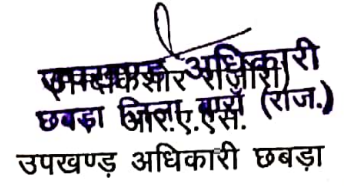 उपखण्ड अधिकारी
छबड़ा जिला बारॉ (राज.)
आर.ए.एस.
उपखण्ड़ अधिकारी छबड़ा